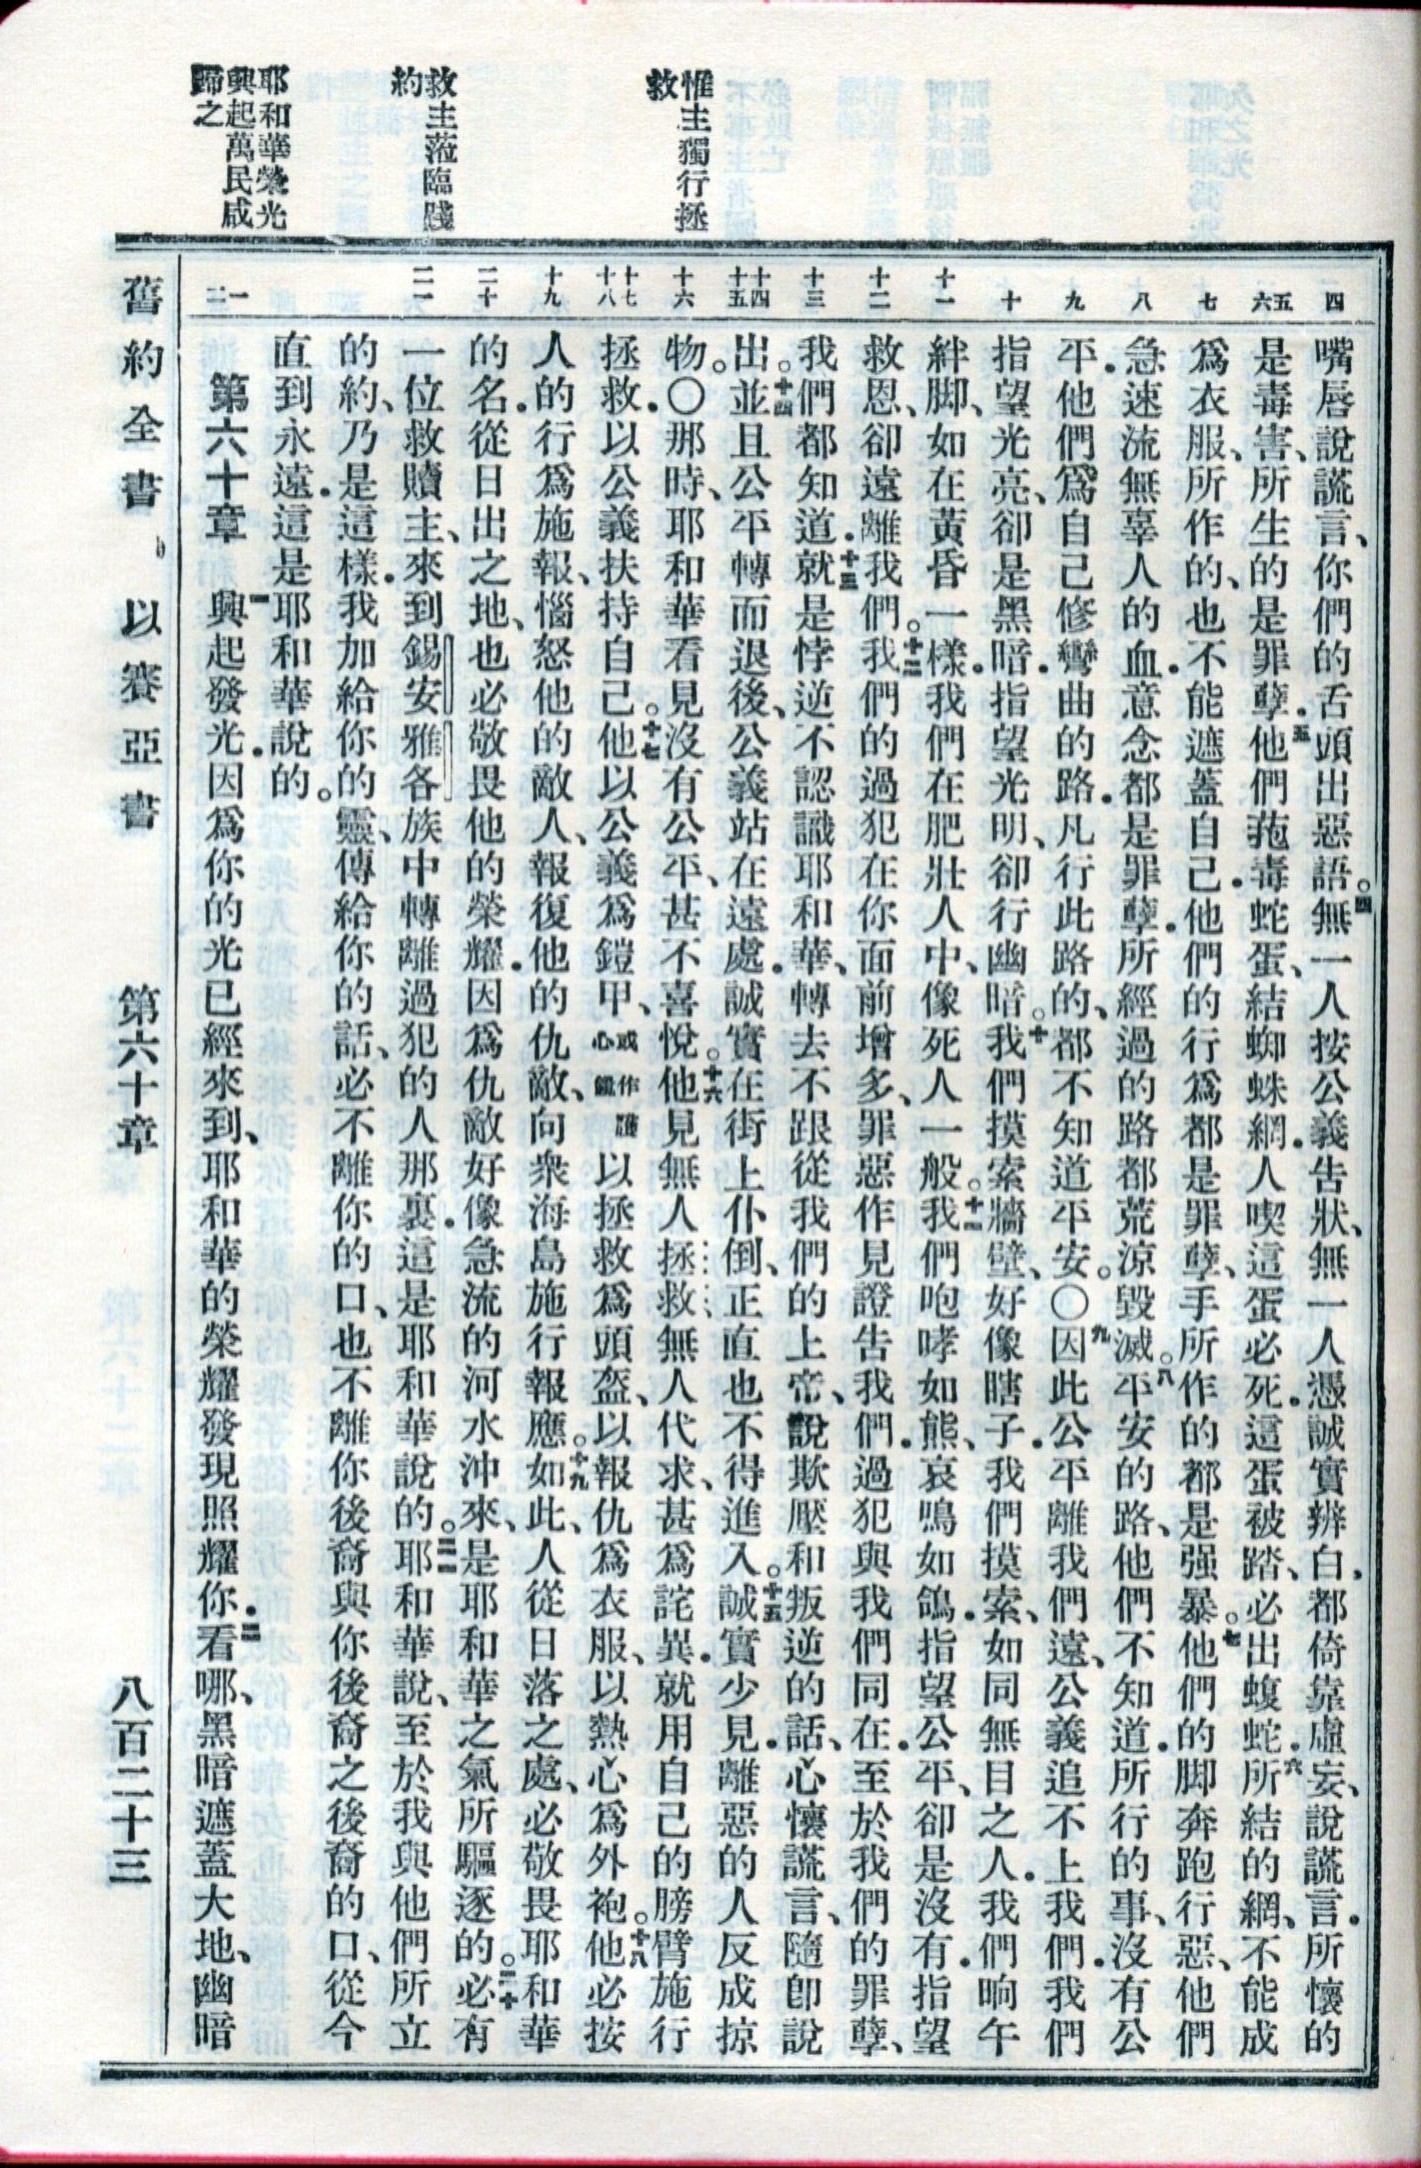 惟主獨行拯
救
救主蒞臨踐
約
耶和華榮光
興起萬民咸
歸之
四
五
六
七
八
九
十
十一
十二
十三
十四
十五
十六
十七
十八
十九
二十
二一
一
二
嘴唇說謊言、你們的舌頭出惡語。四無一人按公義告狀、無一人憑誠實辨白.都倚靠虛妄、說謊言.所懷的
是毒害、所生的是罪孽.五他們菢毒蛇蛋、結蜘蛛網.人喫這蛋必死.這蛋被踏、必出蝮蛇.六所結的網、不能成
爲衣服、所作的、也不能遮蓋自己.他們的行爲都是罪孽、手所作的都是强暴。七他們的脚奔跑行惡、他們
急速流無辜人的血.意念都是罪孽.所經過的路都荒涼毀滅。八平安的路、他們不知道.所行的事、沒有公
平.他們爲自己修彎曲的路.凡行此路的、都不知道平安。〇九因此公平離我們遠、公義追不上我們.我們
指望光亮、卻是黑暗.指望光明、卻行幽暗。十我們摸索牆壁、好像瞎子.我們摸索、如同無目之人.我們晌午
絆脚、如在黃昏一樣.我們在肥壯人中、像死人一般。十一我們咆哮如熊、哀鳴如鴿.指望公平、卻是沒有.指望
救恩、卻遠離我們。十二我們的過犯在你面前增多、罪惡作見證告我們.過犯與我們同在.至於我們的罪孽、
我們都知道.十三就是悖逆不認識耶和華、轉去不跟從我們的上帝、說欺壓和叛逆的話、心懷謊言、隨卽說
出。十四並且公平轉而退後、公義站在遠處.誠實在街上仆倒、正直也不得進入。十五誠實少見.離惡的人反成掠
物。〇那時、耶和華看見沒有公平、甚不喜悅。十六他見無人拯救、無人代求、甚爲詫異.就用自己的膀臂施行
拯救.以公義扶持自己。十七他以公義爲鎧甲、或作護心鏡以拯救爲頭盔、以報仇爲衣服、以熱心爲外袍。十八他必按
人的行爲施報、惱怒他的敵人、報復他的仇敵、向衆海島施行報應。十九如此、人從日落之處、必敬畏耶和華
的名.從日出之地、也必敬畏他的榮耀.因爲仇敵好像急流的河水沖來、是耶和華之氣所驅逐的。二十必有
一位救贖主、來到錫安雅各族中轉離過犯的人那裏.這是耶和華說的。二一耶和華說、至於我與他們所立
的約、乃是這樣.我加給你的靈、傳給你的話、必不離你的口、也不離你後裔與你後裔之後裔的口、從今
直到永遠.這是耶和華說的。
第六十章 一興起發光.因爲你的光已經來到、耶和華的榮耀發現照耀你.二看哪、黑暗遮蓋大地、幽暗
舊約全書 以賽亞書 第六十章 八百二十三